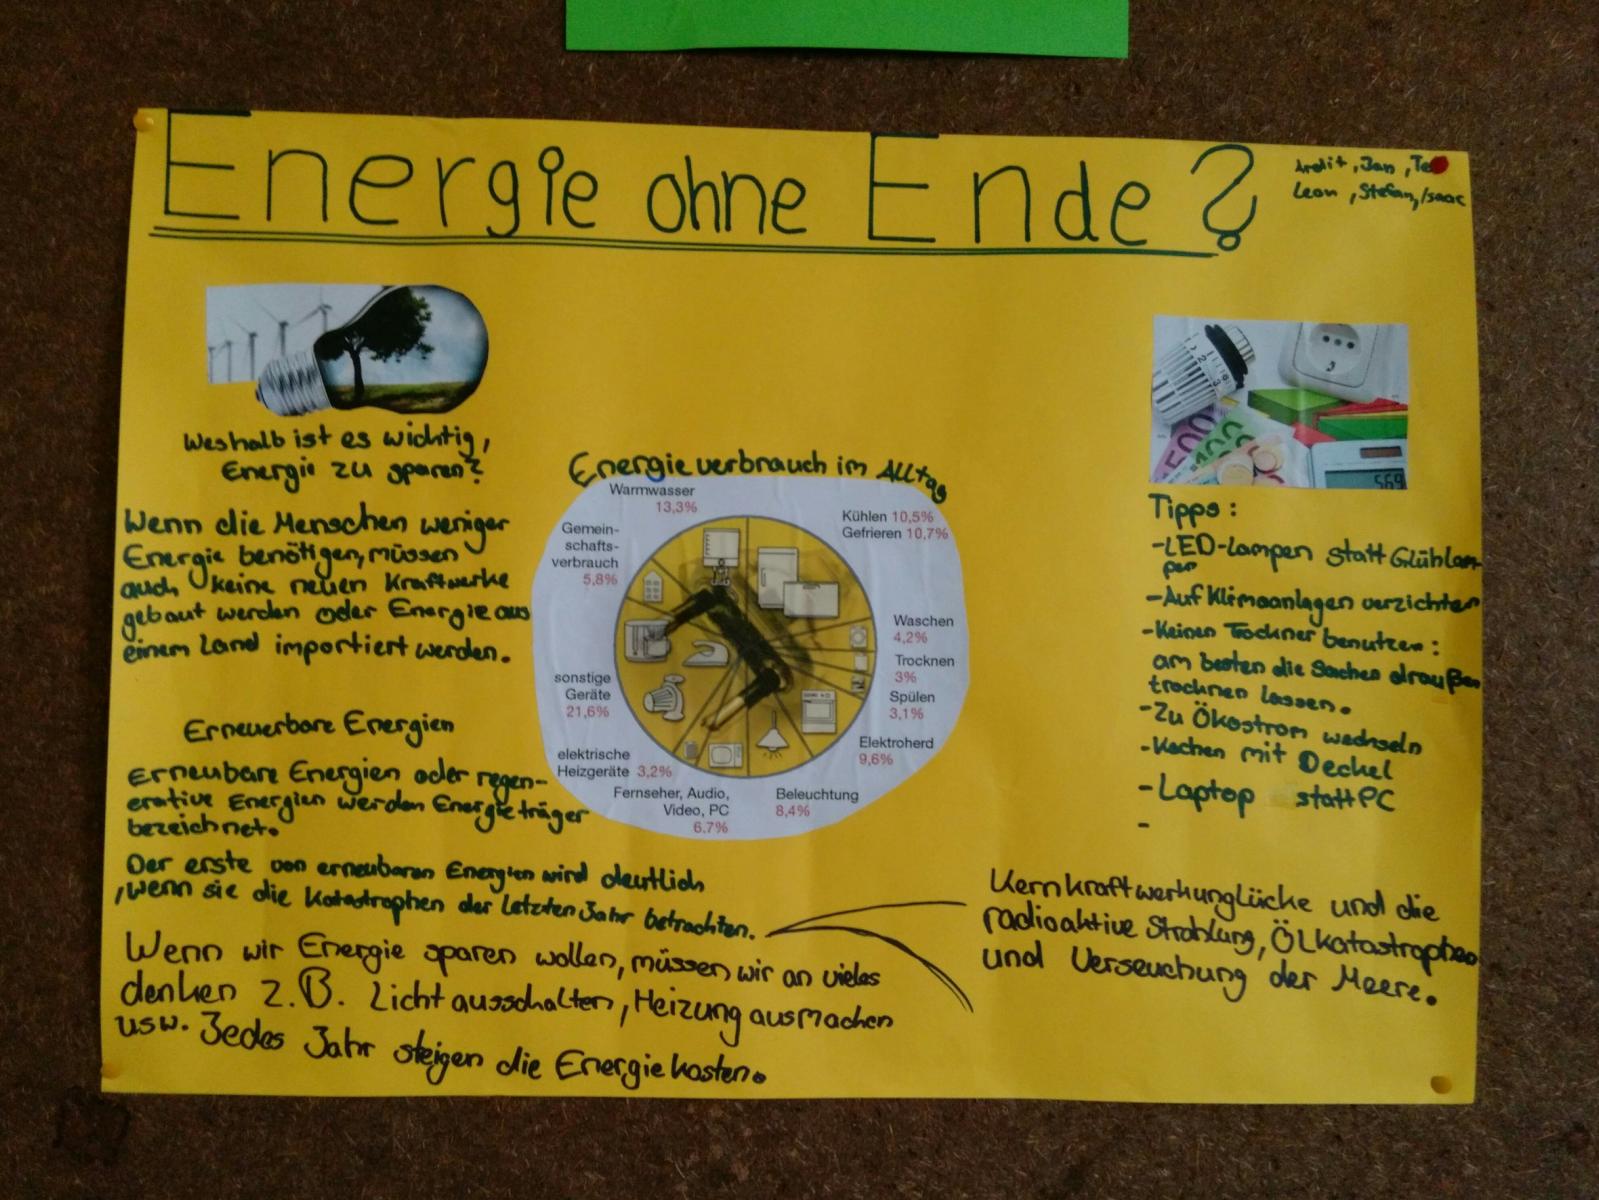 Energie ohne Ende?
Ardit, Jan,
Leon, Stefan, Isaac
Weshalb ist es wichtig,
Energie zu sparen?
Wenn die Menschen weniger
Energie benötigen, müssen
auch keine neuen Kraftwerke
gebaut werden oder Energie aus
einem Land importiert werden.
Erneuerbare Energien
Erneubare Energien oder regen-
erative Energien werden Energieträger
bezeichnet.
Der erste von erneubaren Energien wird deutlich
, wenn sie die Katastrophen der letzten Jahr betrachten.
Wenn wir Energie sparen wollen, müssen wir an vieles
denken z.B. Licht ausschalten, Heizung ausmachen
usw. Jedes Jahr steigen die Energiekosten.
Energieverbrauch im Alltag
Warmwasser
13,3%
Gemein-
schafts-
verbrauch
5,8%
sonstige
Geräte
21,6%
elektrische
Heizgeräte 3,2%
Fernseher, Audio,
Video, PC
6,7%
Beleuchtung
8,4%
Elektroherd
9,6%
Spülen
3,1%
Trocknen
3%
Waschen
4,2%
Kühlen 10,5%
Gefrieren 10,7%
500
100
569
Tipps:
-LED-Lampen statt Glühlam-
pen
-Auf Klimaanlagen verzichten
-Keinen Trockner benutzen:
am besten die Sachen draußen
trocknen lassen.
-Zu Ökostrom wechseln
-Kochen mit Deckel
-Laptop statt PC
-
Kernkraftwerkunglücke und die
radioaktive Strahlung, Ölkatastrophen
und Verseuchung der Meere.